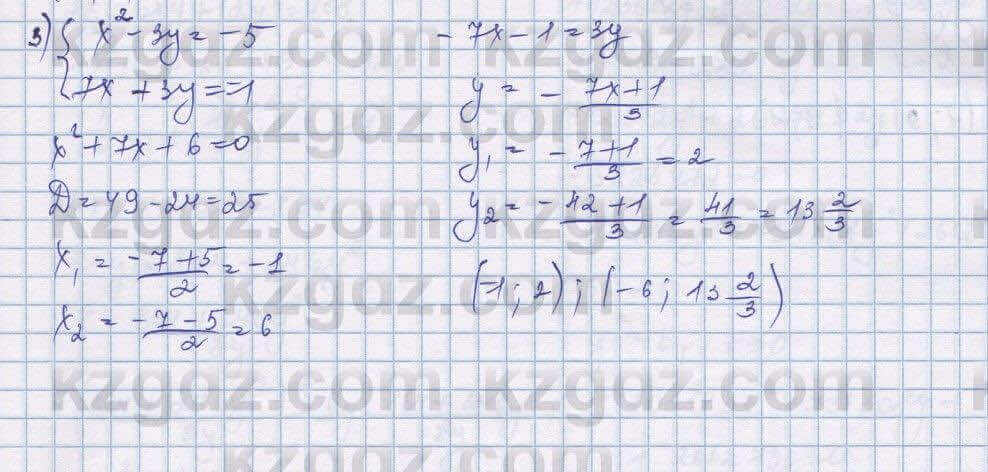 3) { x² - 3y = -5
7x + 3y = -1
x² + 7x + 6 = 0
D = 49 - 24 = 25
x₁ = -7+5/2 = -1
x₂ = -7-5/2 = 6
-7x - 1 = 3y
y = - 7x+1/3
y₁ = - -7+1/3 = 2
y₂ = - -42+1/3 = 41/3 = 13 2/3
(-1; 2); (-6; 13 2/3)
kzgdz.com
kzgdz.com
kzgdz.com
kzgdz.com
kzgdz.com
kzgdz.com
kzgdz.com
kzgdz.com